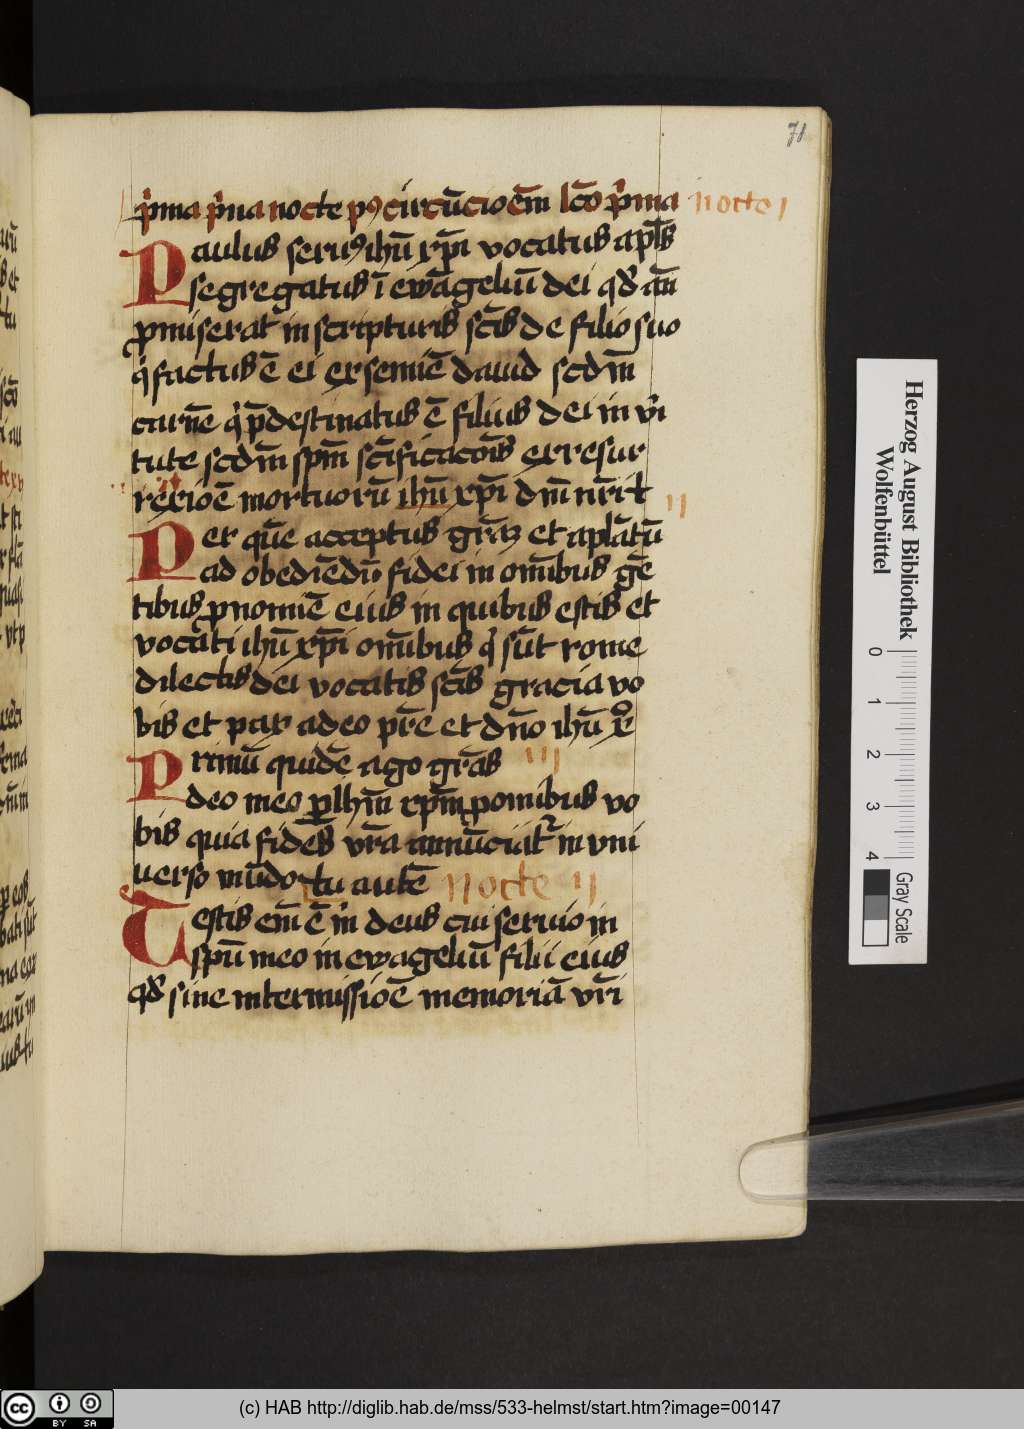 71
p̾ma p̾ma nocte pꝰ circūcioēm lc̄o p̾ma nocte i
Paulus seruꝰ ihū xp̄i vocatus apl̄s
segregatus ī ewāgeliū dei qd̓ an̄
ꝓmiserat in scripturis sc̄is de filio suo
q̇ factus ē ei ex semīe dauid scd̄m
carnē q̇ p̄destinatus ē filius dei in v̇i
tute scd̄m spm̄ sc̄ificacōis ex resur
rexioē mortuorū ihū xp̄i dn̄i nr̄i ii
Per quē acceptus grāꝫ et aplātū
ad obediēdū fidei in om̄ibus gē
tibus ꝓ nomīe eius in quibus estis et
vocāti ihū xp̄i om̄ibus q̇ sūt rome
dilectis dei vocatis sc̄is gracia vo
bis et pax a deo pr̄e et dn̄o ihū xͦ
Primū quidē ago grās iii
deo meo ꝑ ihm̄ xpm̄ ꝓ om̄ibus vo
bis quia fides vr̄a annūciat᷑ in vni
uerso mūdo tu autē nocte ii
Testis em̄ ē m̓ deus cui seruio in
spū meo in ewageliū filii eius
qd̓ sine intermissioē memoriā vr̄i
Herzog August Bibliothek
Wolfenbüttel
0 1 2 3 4
Gray Scale
cc BY SA
(c) HAB http://diglib.hab.de/mss/533-helmst/start.htm?image=00147